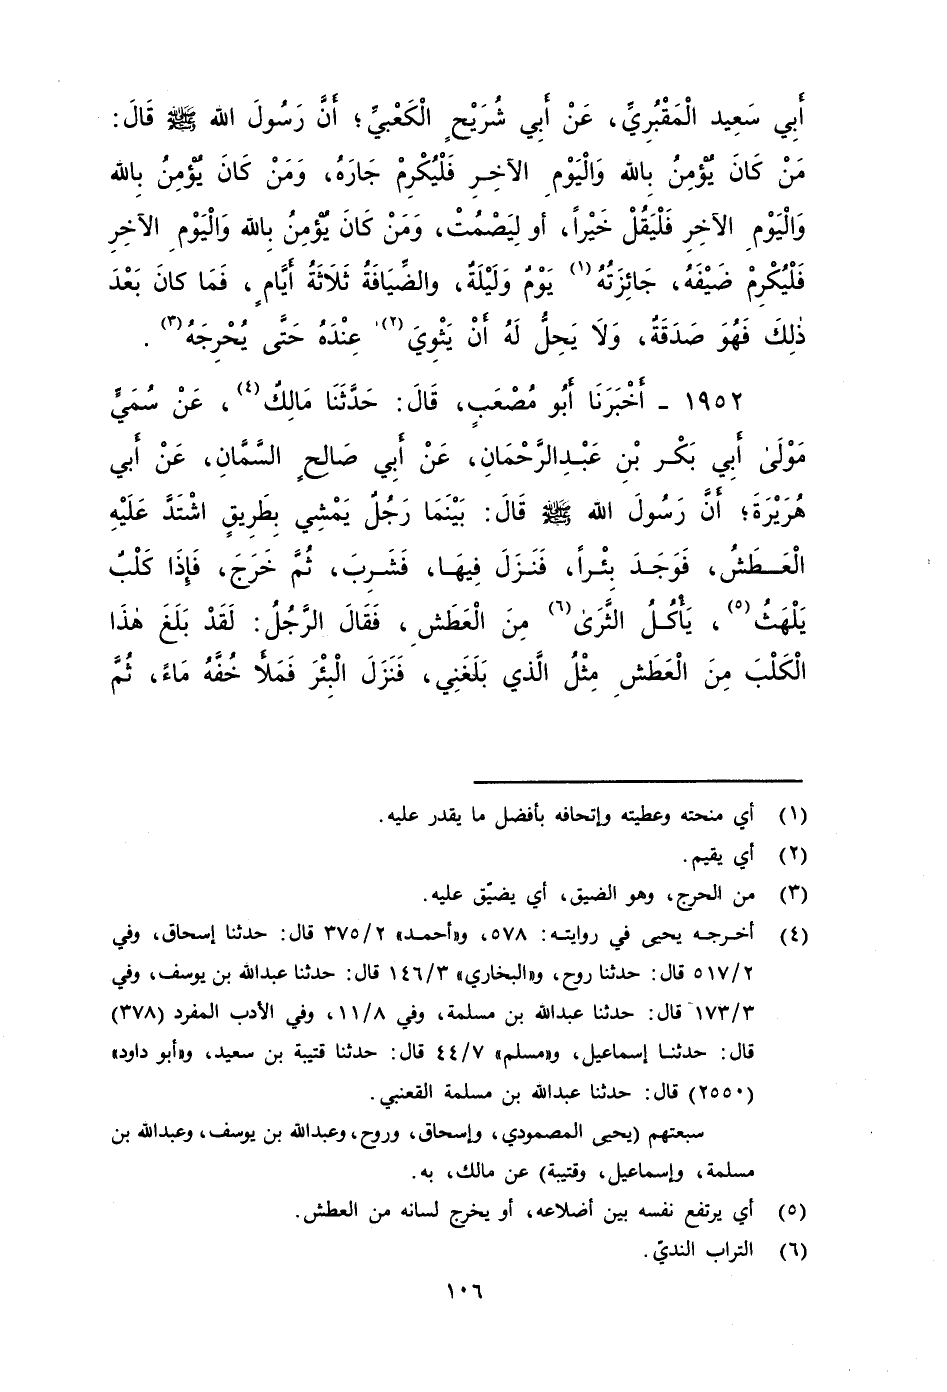 أَبِي سَعِيد الْمَقْبُرِيِّ، عَنْ أَبِي شُرَيْحٍ الْكَعْبِيِّ؛ أَنَّ رَسُولَ الله ﷺ قَالَ:
مَنْ كَانَ يُؤْمِنُ بِالله وَالْيَوْمِ الآخِرِ فَلْيُكْرِمْ جَارَهُ، وَمَنْ كَانَ يُؤْمِنُ بِالله
وَالْيَوْمِ الآخِرِ فَلْيَقُلْ خَيْراً، أو لِيَصْمُتْ، وَمَنْ كَانَ يُؤْمِنُ بِالله وَالْيَوْمِ الآخِرِ
فَلْيُكْرِمْ ضَيْفَهُ، جَائِزَتُهُ(١) يَوْمٌ وَلَيْلَةٌ، والضِّيَافَةُ ثَلَاثَةُ أَيَّامٍ، فَمَا كانَ بَعْدَ
ذٰلِكَ فَهُوَ صَدَقَةٌ، وَلَا يَحِلُّ لَهُ أَنْ يَثْوِيَ(٢) عِنْدَهُ حَتَّى يُحْرِجَهُ(٣).
١٩٥٢ - أَخْبَرَنَا أَبُو مُصْعَبٍ، قَالَ: حَدَّثَنَا مَالِكٌ(٤)، عَنْ سُمَيٍّ
مَوْلَىٰ أَبِي بَكْرِ بْنِ عَبْدِالرَّحْمَانِ، عَنْ أَبِي صَالِحٍ السَّمَّانِ، عَنْ أَبِي
هُرَيْرَةَ؛ أَنَّ رَسُولَ الله ﷺ قَالَ: بَيْنَمَا رَجُلٌ يَمْشِي بِطَرِيقٍ اشْتَدَّ عَلَيْهِ
الْعَطَشُ، فَوَجَدَ بِئْراً، فَنَزَلَ فِيهَا، فَشَرِبَ، ثُمَّ خَرَجَ، فَإِذَا كَلْبٌ
يَلْهَثُ(٥)، يَأْكُلُ الثَّرَىٰ(٦) مِنَ الْعَطَشِ، فَقَالَ الرَّجُلُ: لَقَدْ بَلَغَ هٰذَا
الْكَلْبَ مِنَ الْعَطَشِ مِثْلُ الَّذي بَلَغَنِي، فَنَزَلَ الْبِئْرَ فَمَلَأَ خُفَّهُ مَاءً، ثُمَّ
(١) أي منحته وعطيته وإتحافه بأفضل ما يقدر عليه.
(٢) أي يقيم.
(٣) من الحرج، وهو الضيق، أي يضيّق عليه.
(٤) أخرجه يحيى في روايته: ٥٧٨، و«أحمد» ٣٧٥/٢ قال: حدثنا إسحاق، وفي
٥١٧/٢ قال: حدثنا روح، و«البخاري» ١٤٦/٣ قال: حدثنا عبدالله بن يوسف، وفي
١٧٣/٣ قال: حدثنا عبدالله بن مسلمة، وفي ١١/٨، وفي الأدب المفرد (٣٧٨)
قال: حدثنا إسماعيل، و«مسلم» ٤٤/٧ قال: حدثنا قتيبة بن سعيد، و«أبو داود»
(٢٥٥٠) قال: حدثنا عبدالله بن مسلمة القعنبي.
سبعتهم (يحيى المصمودي، وإسحاق، وروح، وعبدالله بن يوسف، وعبدالله بن
مسلمة، وإسماعيل، وقتيبة) عن مالك، به.
(٥) أي يرتفع نفسه بين أضلاعه، أو يخرج لسانه من العطش.
(٦) التراب النديّ.
١٠٦